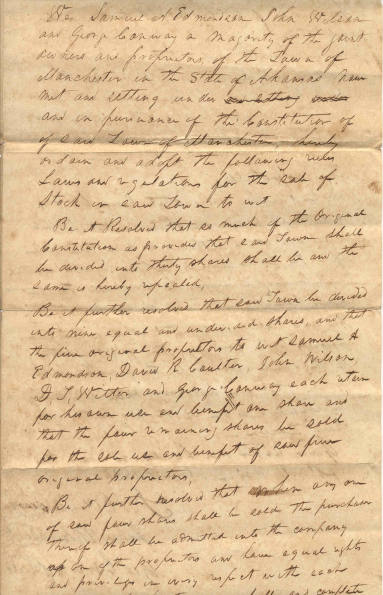 We Samuel A Edmondson John Wilson
and George Conway a Majority of the joint
owners and proprietors, of the Town of
Manchester in the State of Arkansas have
met and setting under
and in pursuance of the Constitution of
of said Town of Manchester, hereby
ordain and adopt the following rules
Laws and regulations for the sale of
Stock in said Town to wit
Be it Resolved that so much of the Original
Constitution as provides that said Town shall
be divided into thirty shares shall be and the
same is hereby repealed,
Be it further resolved that said Town be divided
into nine equal and undivided shares, and that
the five original proprietors to wit Samuel A
Edmondson, David R. Coulter, John Wilson
D. T. Witter and George Conway each retain
for his own use and benefit one share and
that the four remaining shares be sold
for the sole use and benefit of said five
original proprietors,
Be it further resolved that when any one
of said four shares shall be sold the purchaser
thereof shall be admitted into the company
as one of the proprietors and have equal rights
and privileges in every respect with each